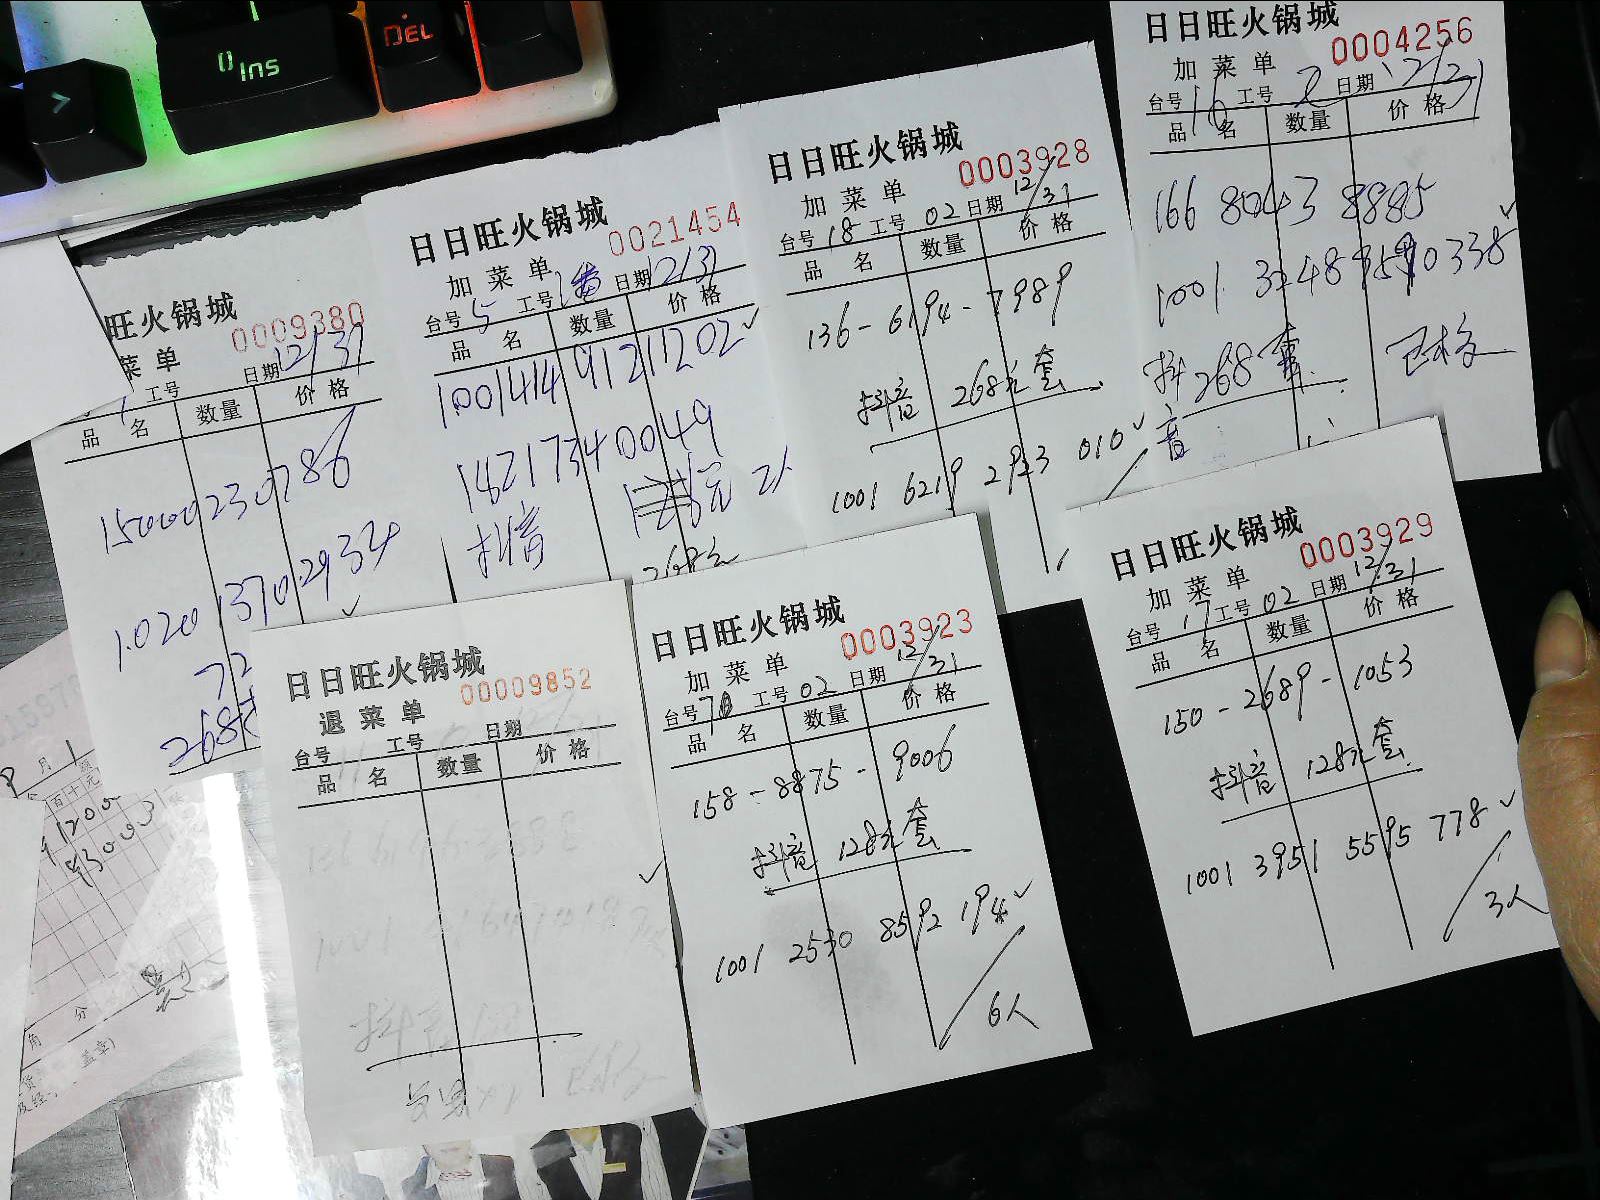 0 Ins
DEL
日日旺火锅城
0004256
加菜单
台号 16 工号 2 日期 12/31
品名 数量 价格
166 8043 8885
1001 3248
抖音 268 已核
日日旺火锅城
0003928
加菜单
台号 18 工号 02 日期 12/31
品名 数量 价格
136-6194-7989
抖音 268元套
1001 6219 2923 010
日日旺火锅城
0021454
加菜单
台号 5 工号 日期 12/31
品名 数量 价格
1001414 91211202
18217340049
抖音
268元
旺火锅城
0009380
菜单
工号 日期 12/31
品名 数量 价格
15000230786
102013702934
72
268
日日旺火锅城
00009852
退菜单
台号 工号 日期
品名 数量 价格
抖音
日日旺火锅城
0003923
加菜单
台号 工号 02 日期 12/31
品名 数量 价格
158-8875-9006
抖音 128元套
1001 2530 8592 194
6人
日日旺火锅城
0003929
加菜单
台号 17 工号 02 日期 12/31
品名 数量 价格
150-2689-1053
抖音 128元套
1001 3951 5595 778
3人
月
百十元
角 分
盖章)